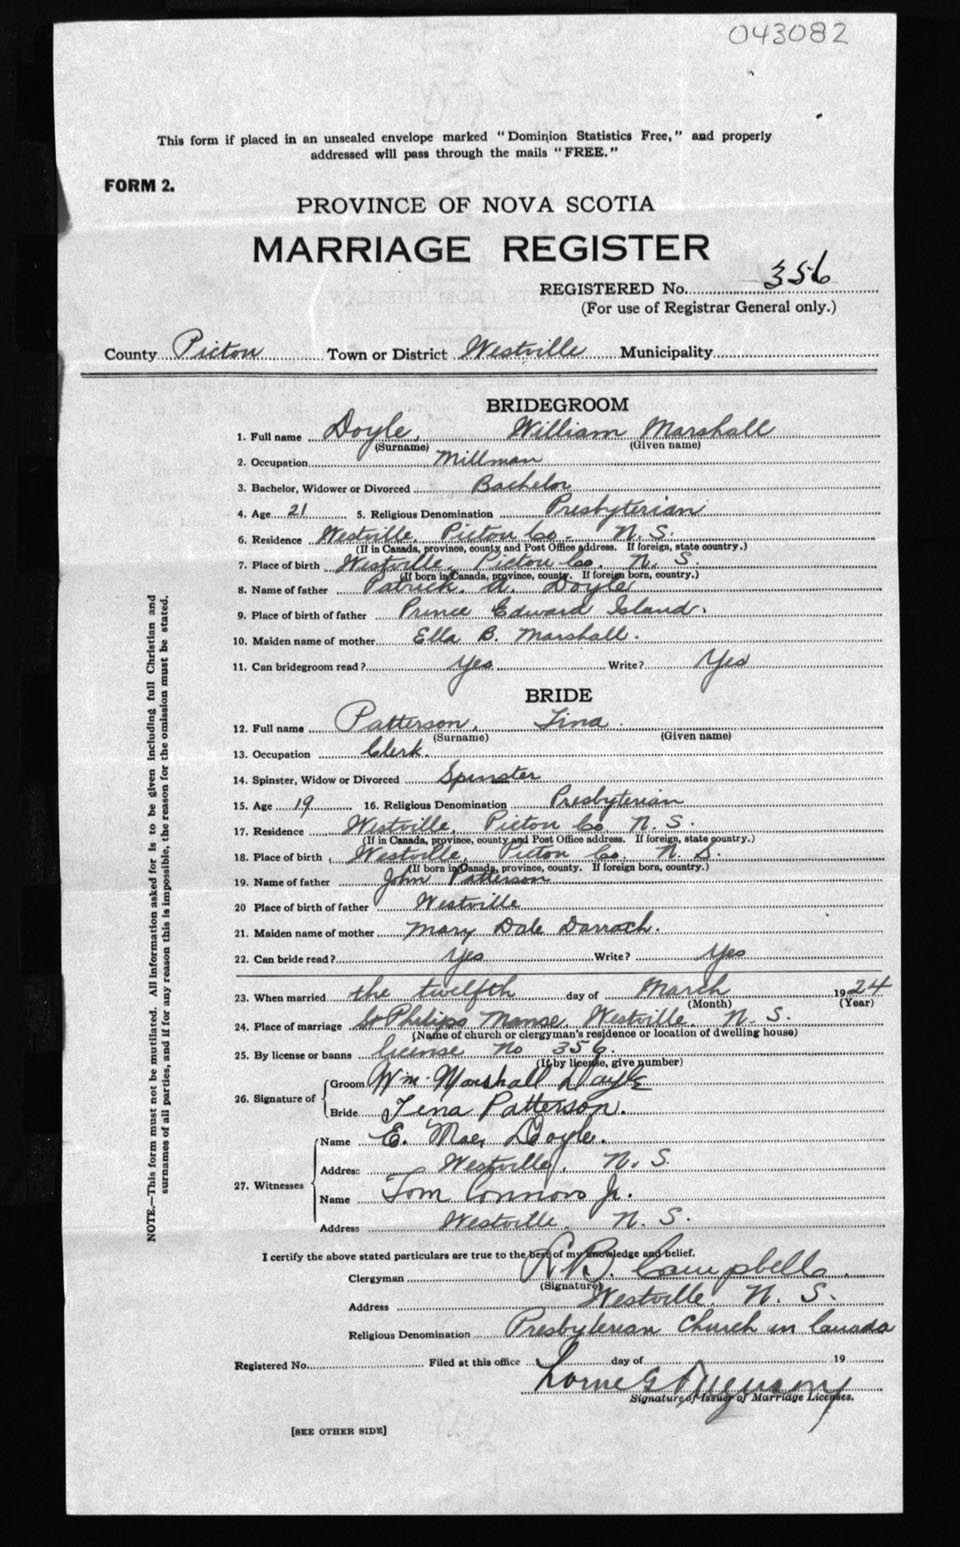 043082
This form if placed in an unsealed envelope marked "Dominion Statistics Free," and properly
addressed will pass through the mails "FREE."
FORM 2.
PROVINCE OF NOVA SCOTIA
MARRIAGE REGISTER
REGISTERED No. 356
(For use of Registrar General only.)
County Pictou Town or District Westville Municipality
BRIDEGROOM
1. Full name Doyle, William Marshall
(Surname) (Given name)
2. Occupation Millman
3. Bachelor, Widower or Divorced Bachelor
4. Age 21 5. Religious Denomination Presbyterian
6. Residence Westville, Pictou Co. N. S.
(If in Canada, province, county and Post Office address. If foreign, state country.)
7. Place of birth Westville, Pictou Co. N. S.
(If born in Canada, province, county. If foreign born, country.)
8. Name of father Patrick A. Doyle
9. Place of birth of father Prince Edward Island.
10. Maiden name of mother Ella B. Marshall.
11. Can bridegroom read? Yes Write? Yes
BRIDE
12. Full name Patterson, Tina
(Surname) (Given name)
13. Occupation Clerk.
14. Spinster, Widow or Divorced Spinster
15. Age 19 16. Religious Denomination Presbyterian
17. Residence Westville, Pictou Co. N. S.
(If in Canada, province, county and Post Office address. If foreign, state country.)
18. Place of birth Westville, Pictou Co. N. S.
(If born in Canada, province, county. If foreign born, country.)
19. Name of father John Patterson
20 Place of birth of father Westville
21. Maiden name of mother Mary Dale Darrach.
22. Can bride read? Yes Write? Yes
23. When married the twelfth day of March 1924
(Month) (Year)
24. Place of marriage St Philips Manse, Westville, N. S.
(Name of church or clergyman's residence or location of dwelling house)
25. By license or banns license No 356
(If by license, give number)
26. Signature of Groom Wm. Marshall Doyle
Bride Tena Patterson.
27. Witnesses Name E. Mae Doyle.
Address Westville, N. S.
Name Tom Connors Jr.
Address Westville, N. S.
I certify the above stated particulars are true to the best of my knowledge and belief.
Clergyman Campbell
(Signature)
Address Westville, N. S.
Religious Denomination Presbyterian Church in Canada
Registered No. Filed at this office day of 19
Lorne G Ferguson
Signature of Issuer of Marriage Licenses.
[SEE OTHER SIDE]
NOTE.—This form must not be mutilated. All information asked for is to be given including full Christian and
surnames of all parties, and if for any reason this is impossible, the reason for the omission must be stated.